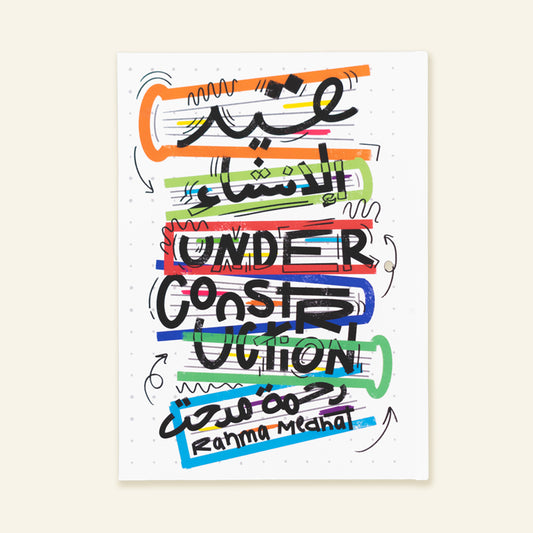 قيد
الإنشاء
UNDER
CONSTR
UCTION
رحمة مدحت
Rahma Medhat